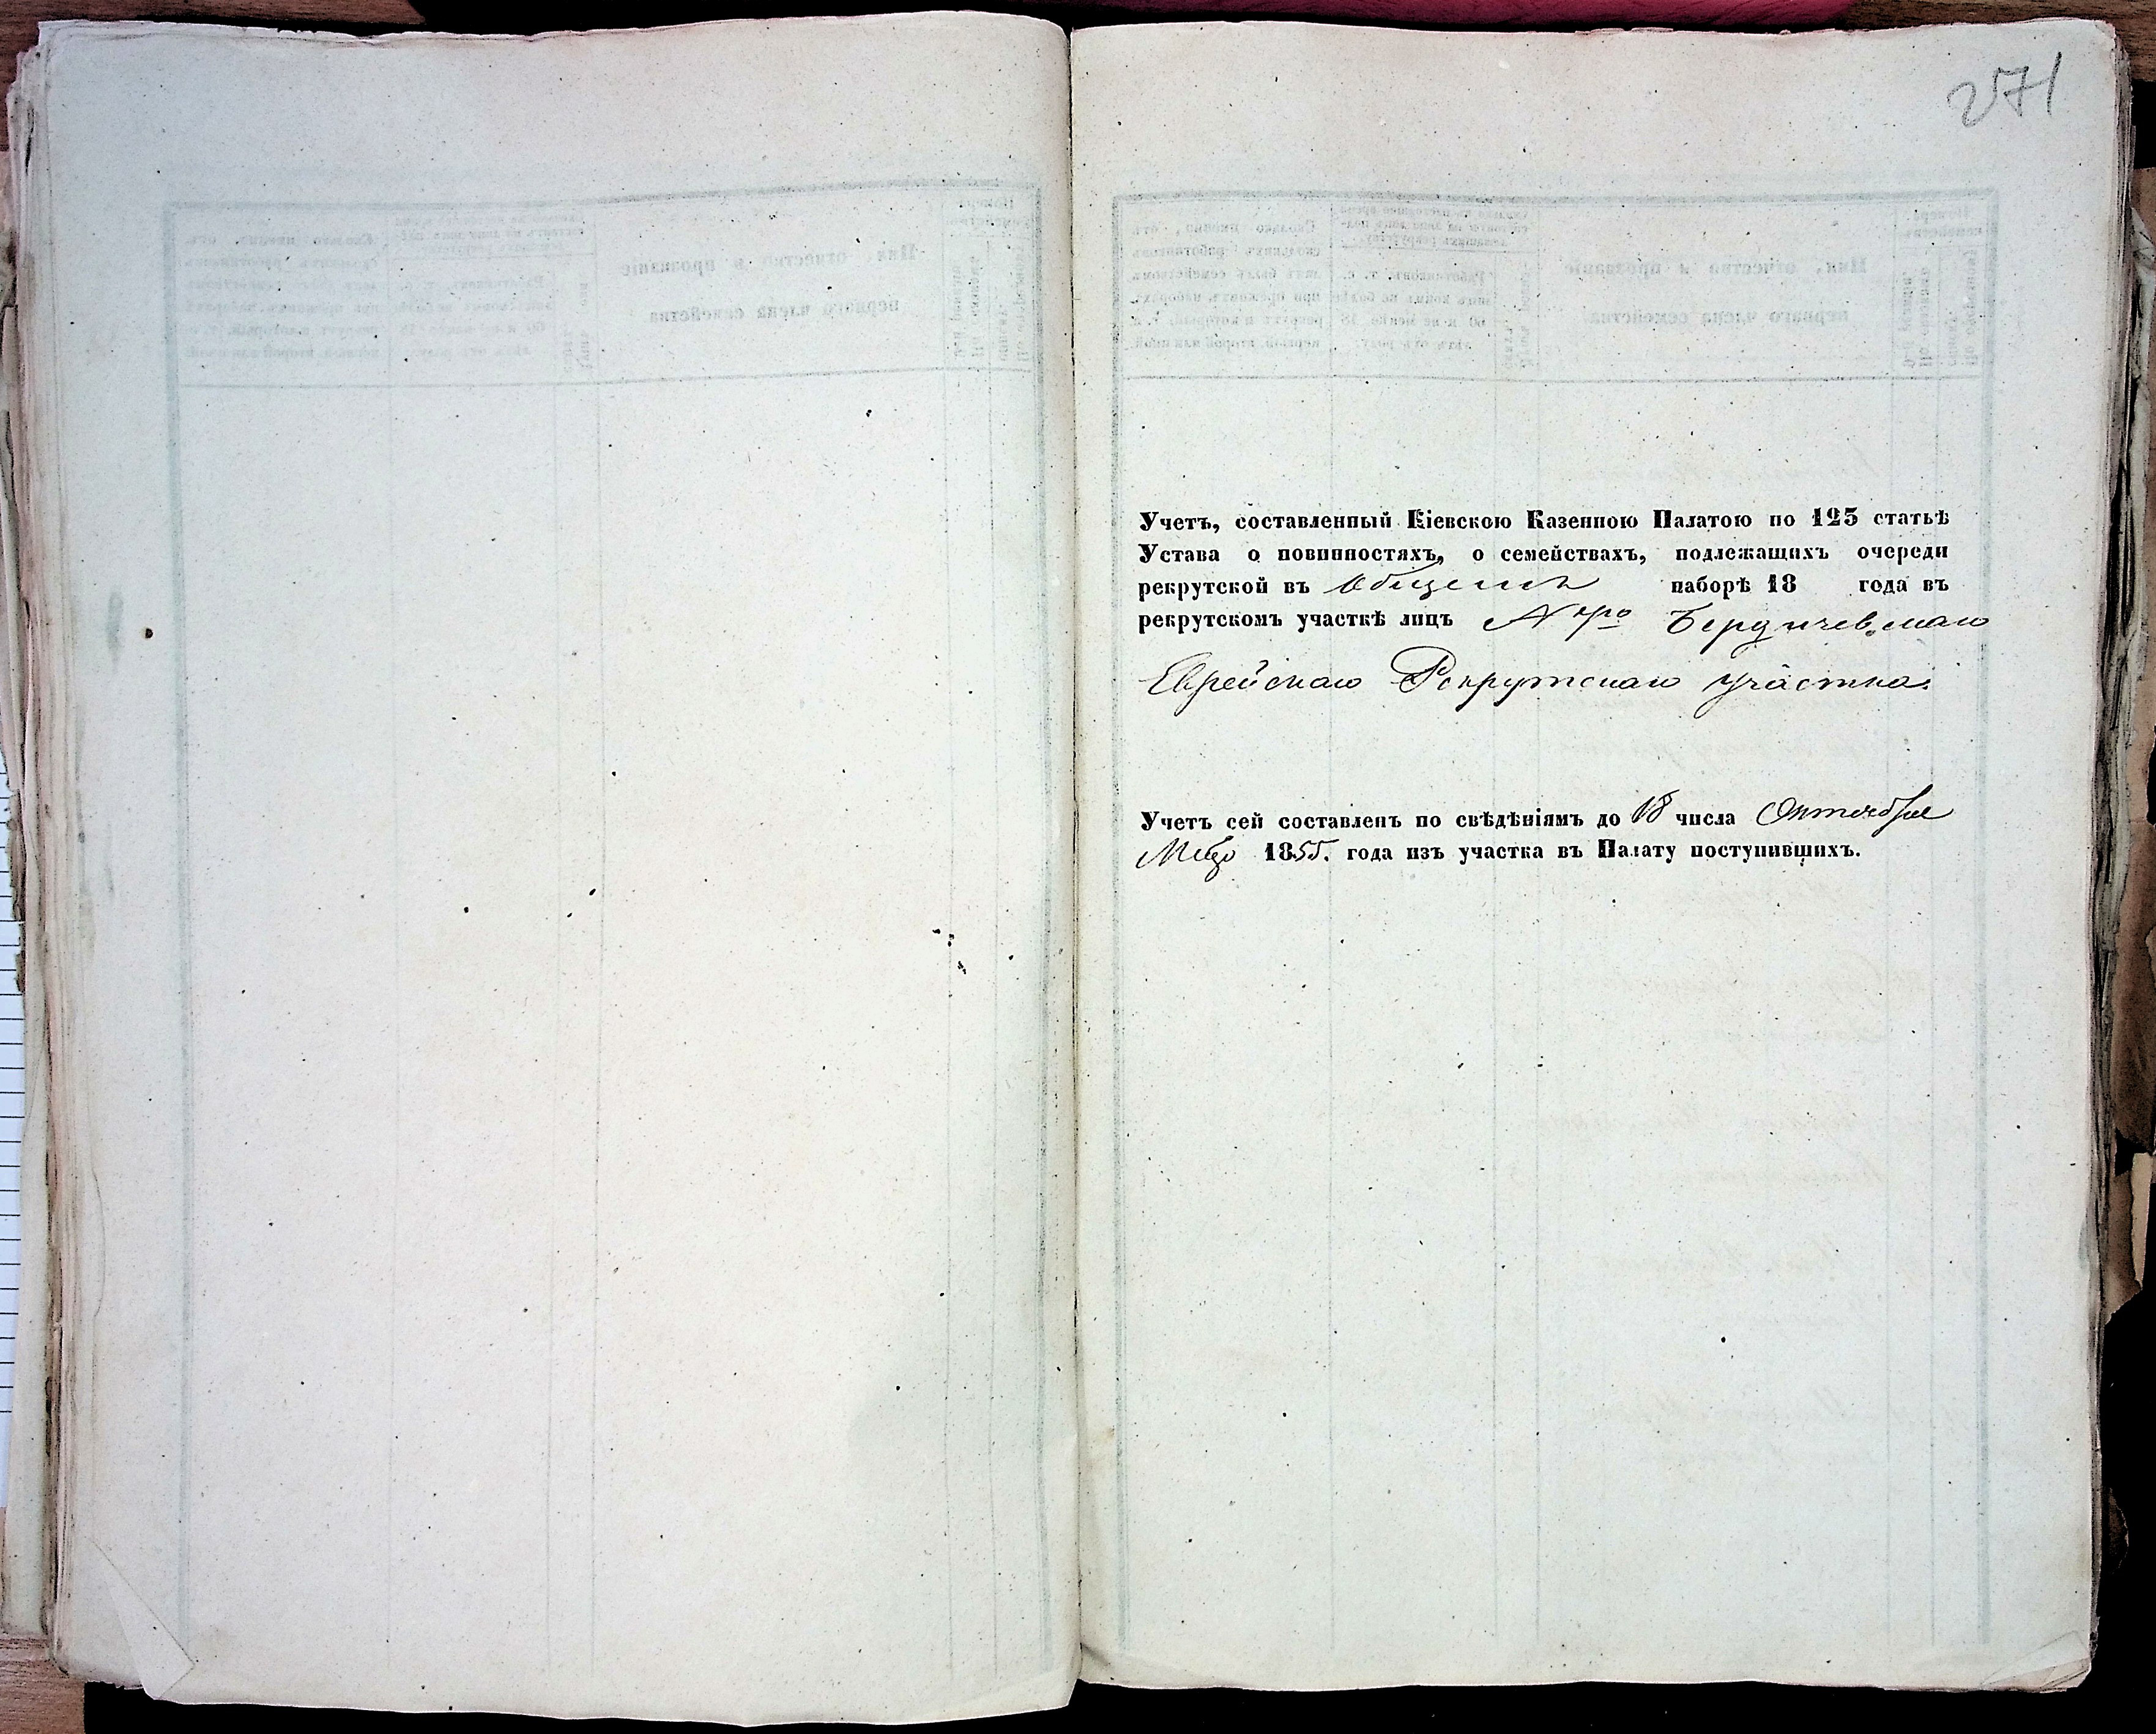 271
Учетъ, составленный Кіевскою Казенною Палатою по 125 статьѣ
Устава о повинностяхъ, о семействахъ, подлежащихъ очереди
рекрутской въ Общемъ наборѣ 18 года въ
рекрутскомъ участкѣ лицъ Бердичевскаго
Еврейскаго Рекрутскаго участка.
Учетъ сей составленъ по свѣдѣніямъ до 18 числа Октября
1855. года изъ участка въ Палату поступившихъ.